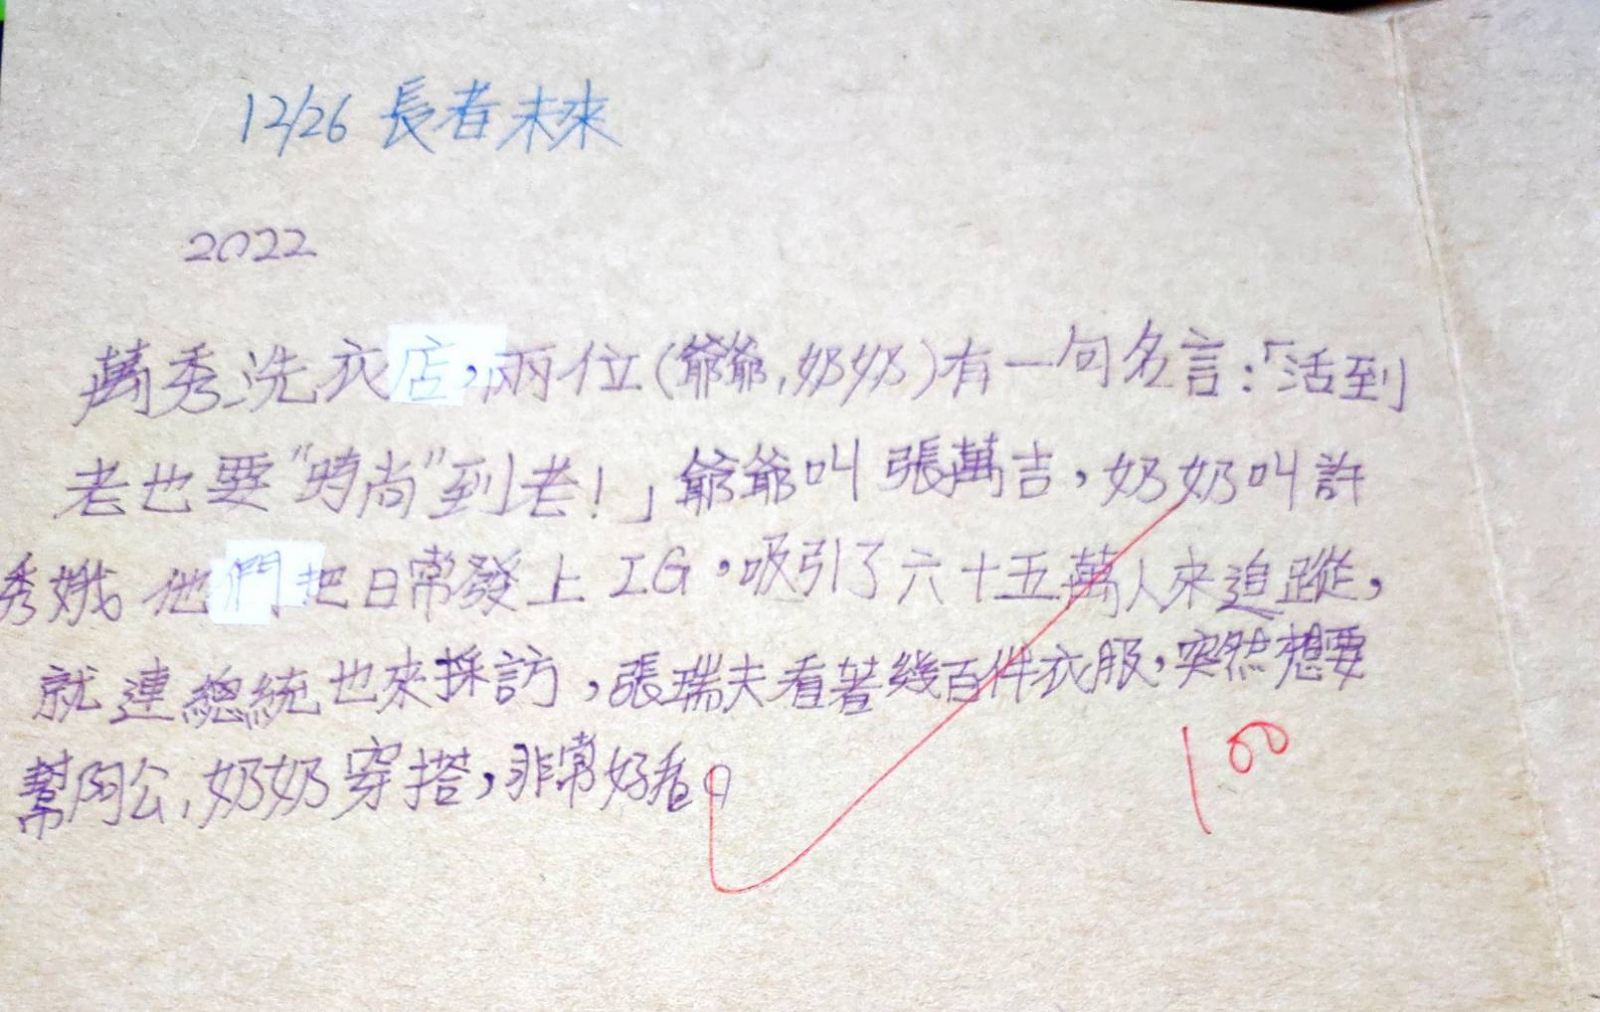 12/26 長者未來
2022
萬秀洗衣店,兩位(爺爺,奶奶)有一句名言:「活到
老也要"時尚"到老!」爺爺叫張萬吉,奶奶叫許
秀娥 他們把日常發上IG,吸引了六十五萬人來追蹤,
就連總統也來採訪,張瑞夫看著幾百件衣服,突然想要
幫阿公,奶奶穿搭,非常好看。
100